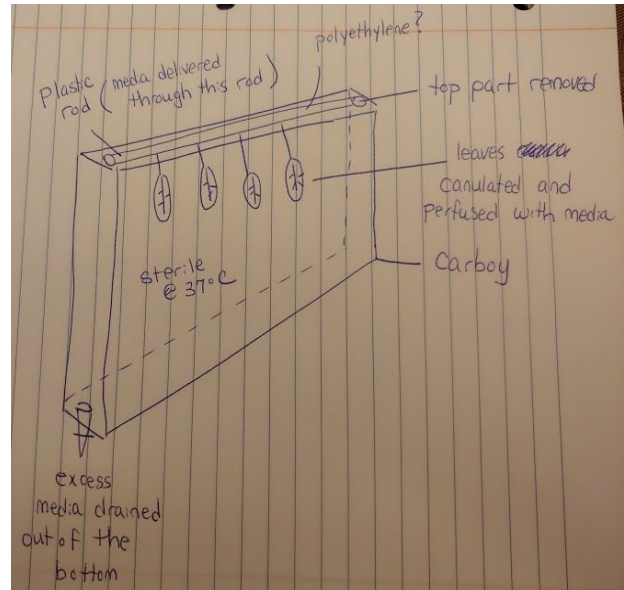 polyethylene?
plastic rod (media delivered
through this rod)
top part removed
leaves
canulated and
perfused with media
Carboy
sterile
@ 37°C
excess
media drained
out of the
bottom